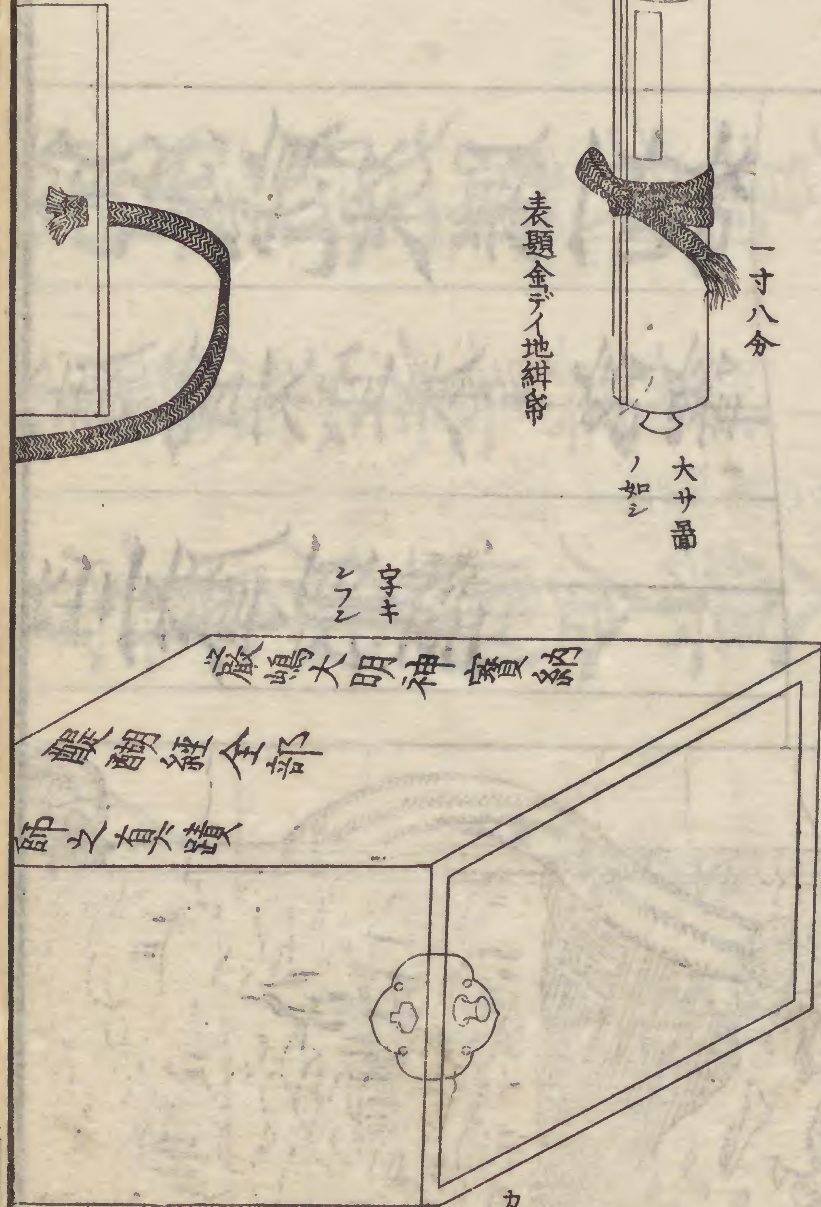 一寸八分
表題金デイ地紺帋
大サ啚
ノ如シ
字キ
ンフン
嚴嶋大明神寳納
醍醐経全部
師之真蹟
カ